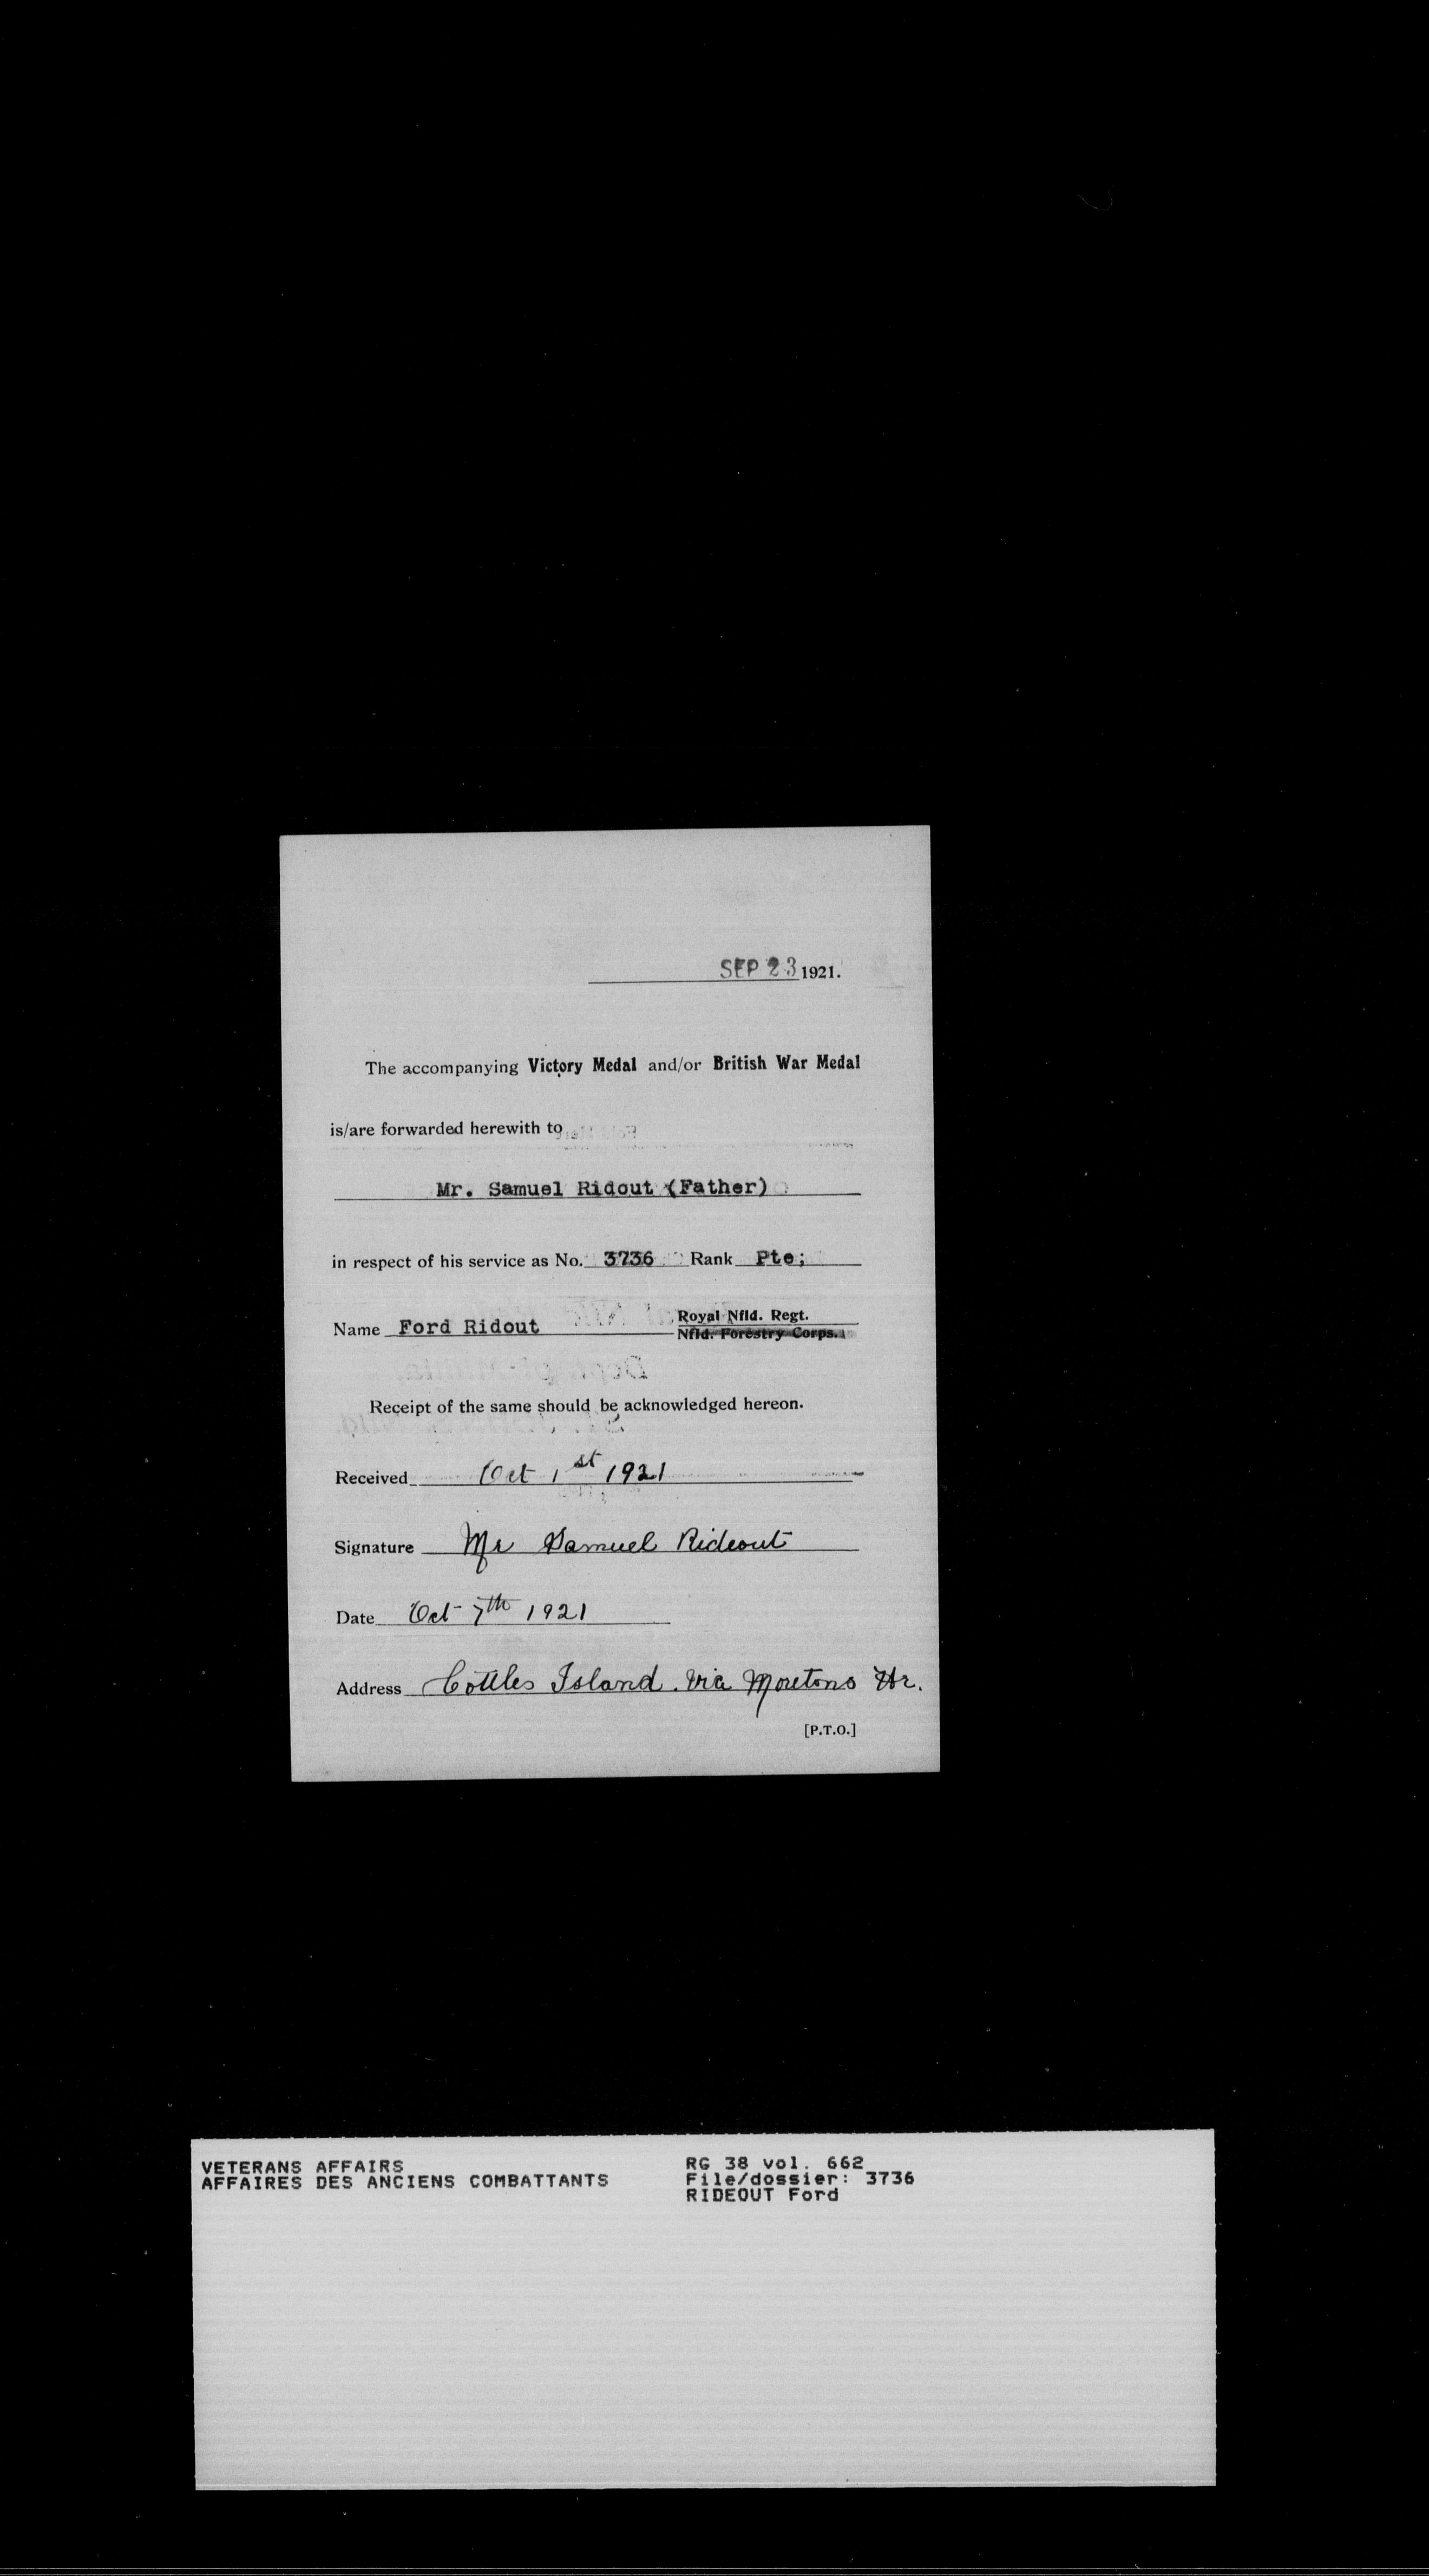 SEP 23 1921.
The accompanying Victory Medal and/or British War Medal
is/are forwarded herewith to
Mr. Samuel Ridout (Father)
in respect of his service as No. 3736 Rank Pte;
Name Ford Ridout Royal Nfld. Regt.
Nfld. Forestry Corps.
Receipt of the same should be acknowledged hereon.
Received Oct 1st 1921
Signature Mr Samuel Rideout
Date Oct 7th 1921
Address Cottles Island. via Moretons Hr.
[P.T.O.]
VETERANS AFFAIRS
AFFAIRES DES ANCIENS COMBATTANTS
RG 38 vol. 662
File/dossier: 3736
RIDEOUT Ford